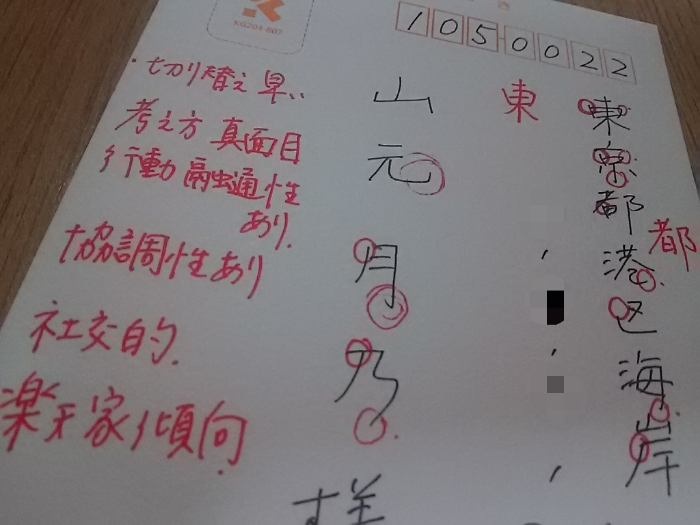 KG204-807
1050022
東京都港区海岸
東
都
山元月乃
様
・切り替え早い
考え方 真面目
行動 融通性
あり.
協調性あり
社交的.
楽天家傾向